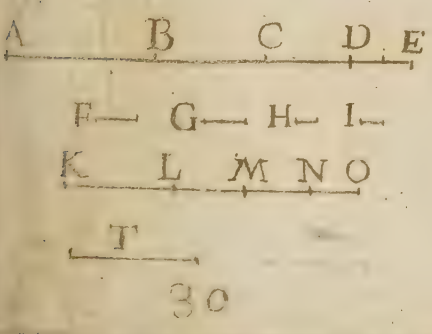 A B C D E
F G H I
K L M N O
T
30